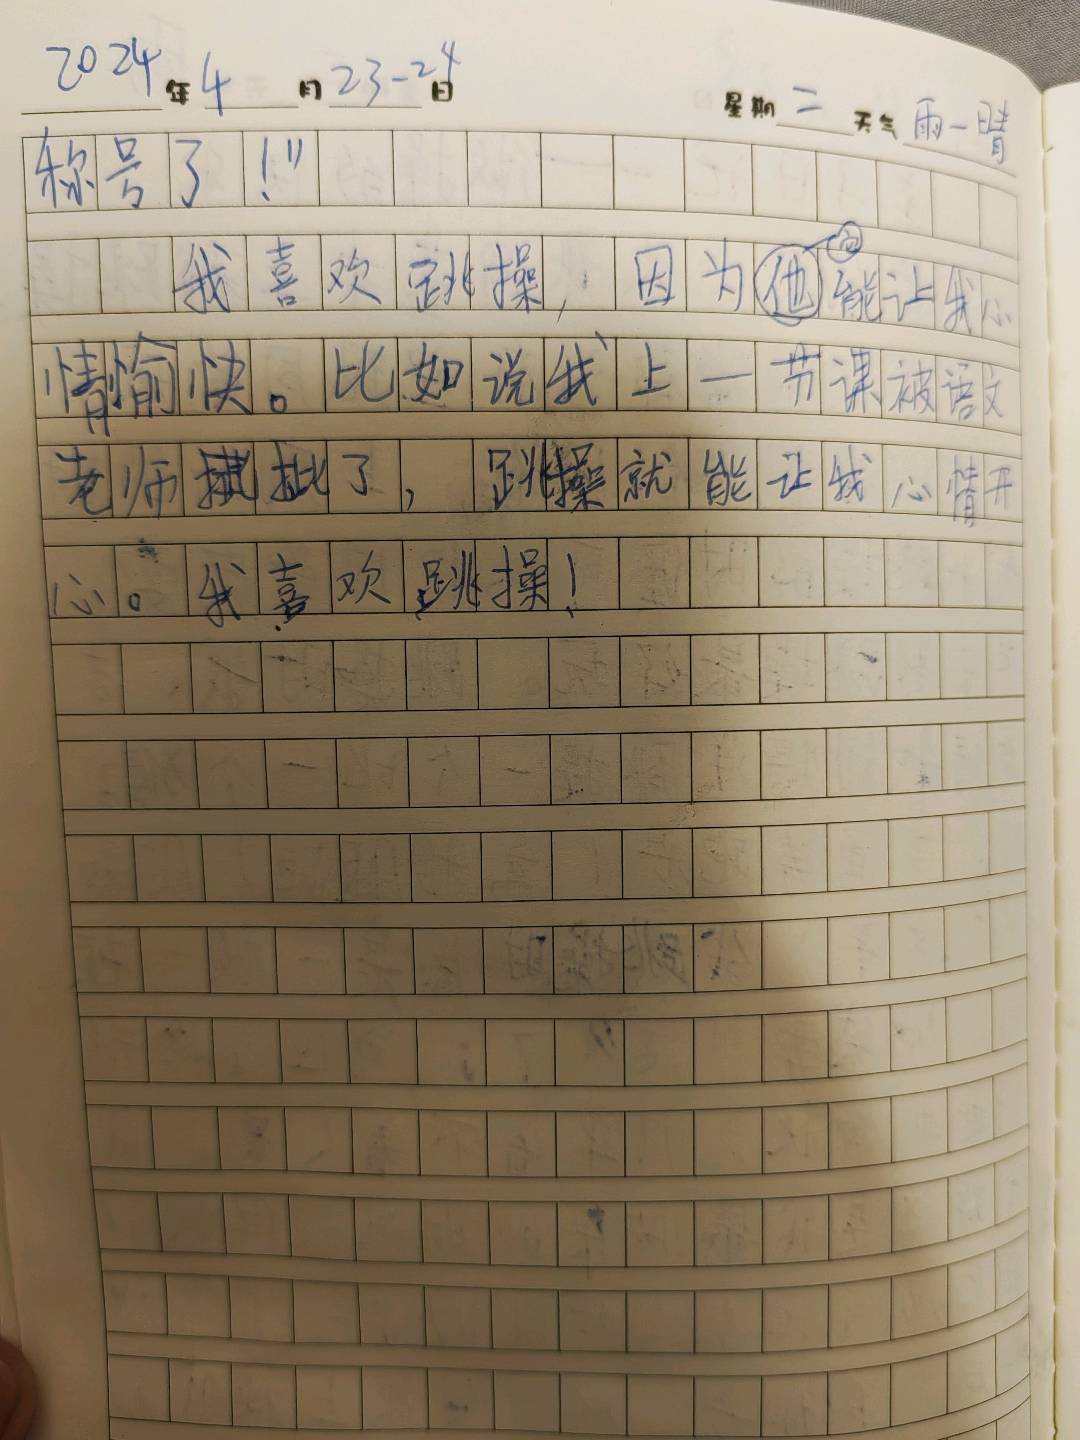 2024年4月23-24日 星期二 天气雨一晴
称号了！”
我喜欢跳操，因为他能让我心
情愉快。比如说我上一节课被语文
老师批了，跳操就能让我心情开
心。我喜欢跳操！